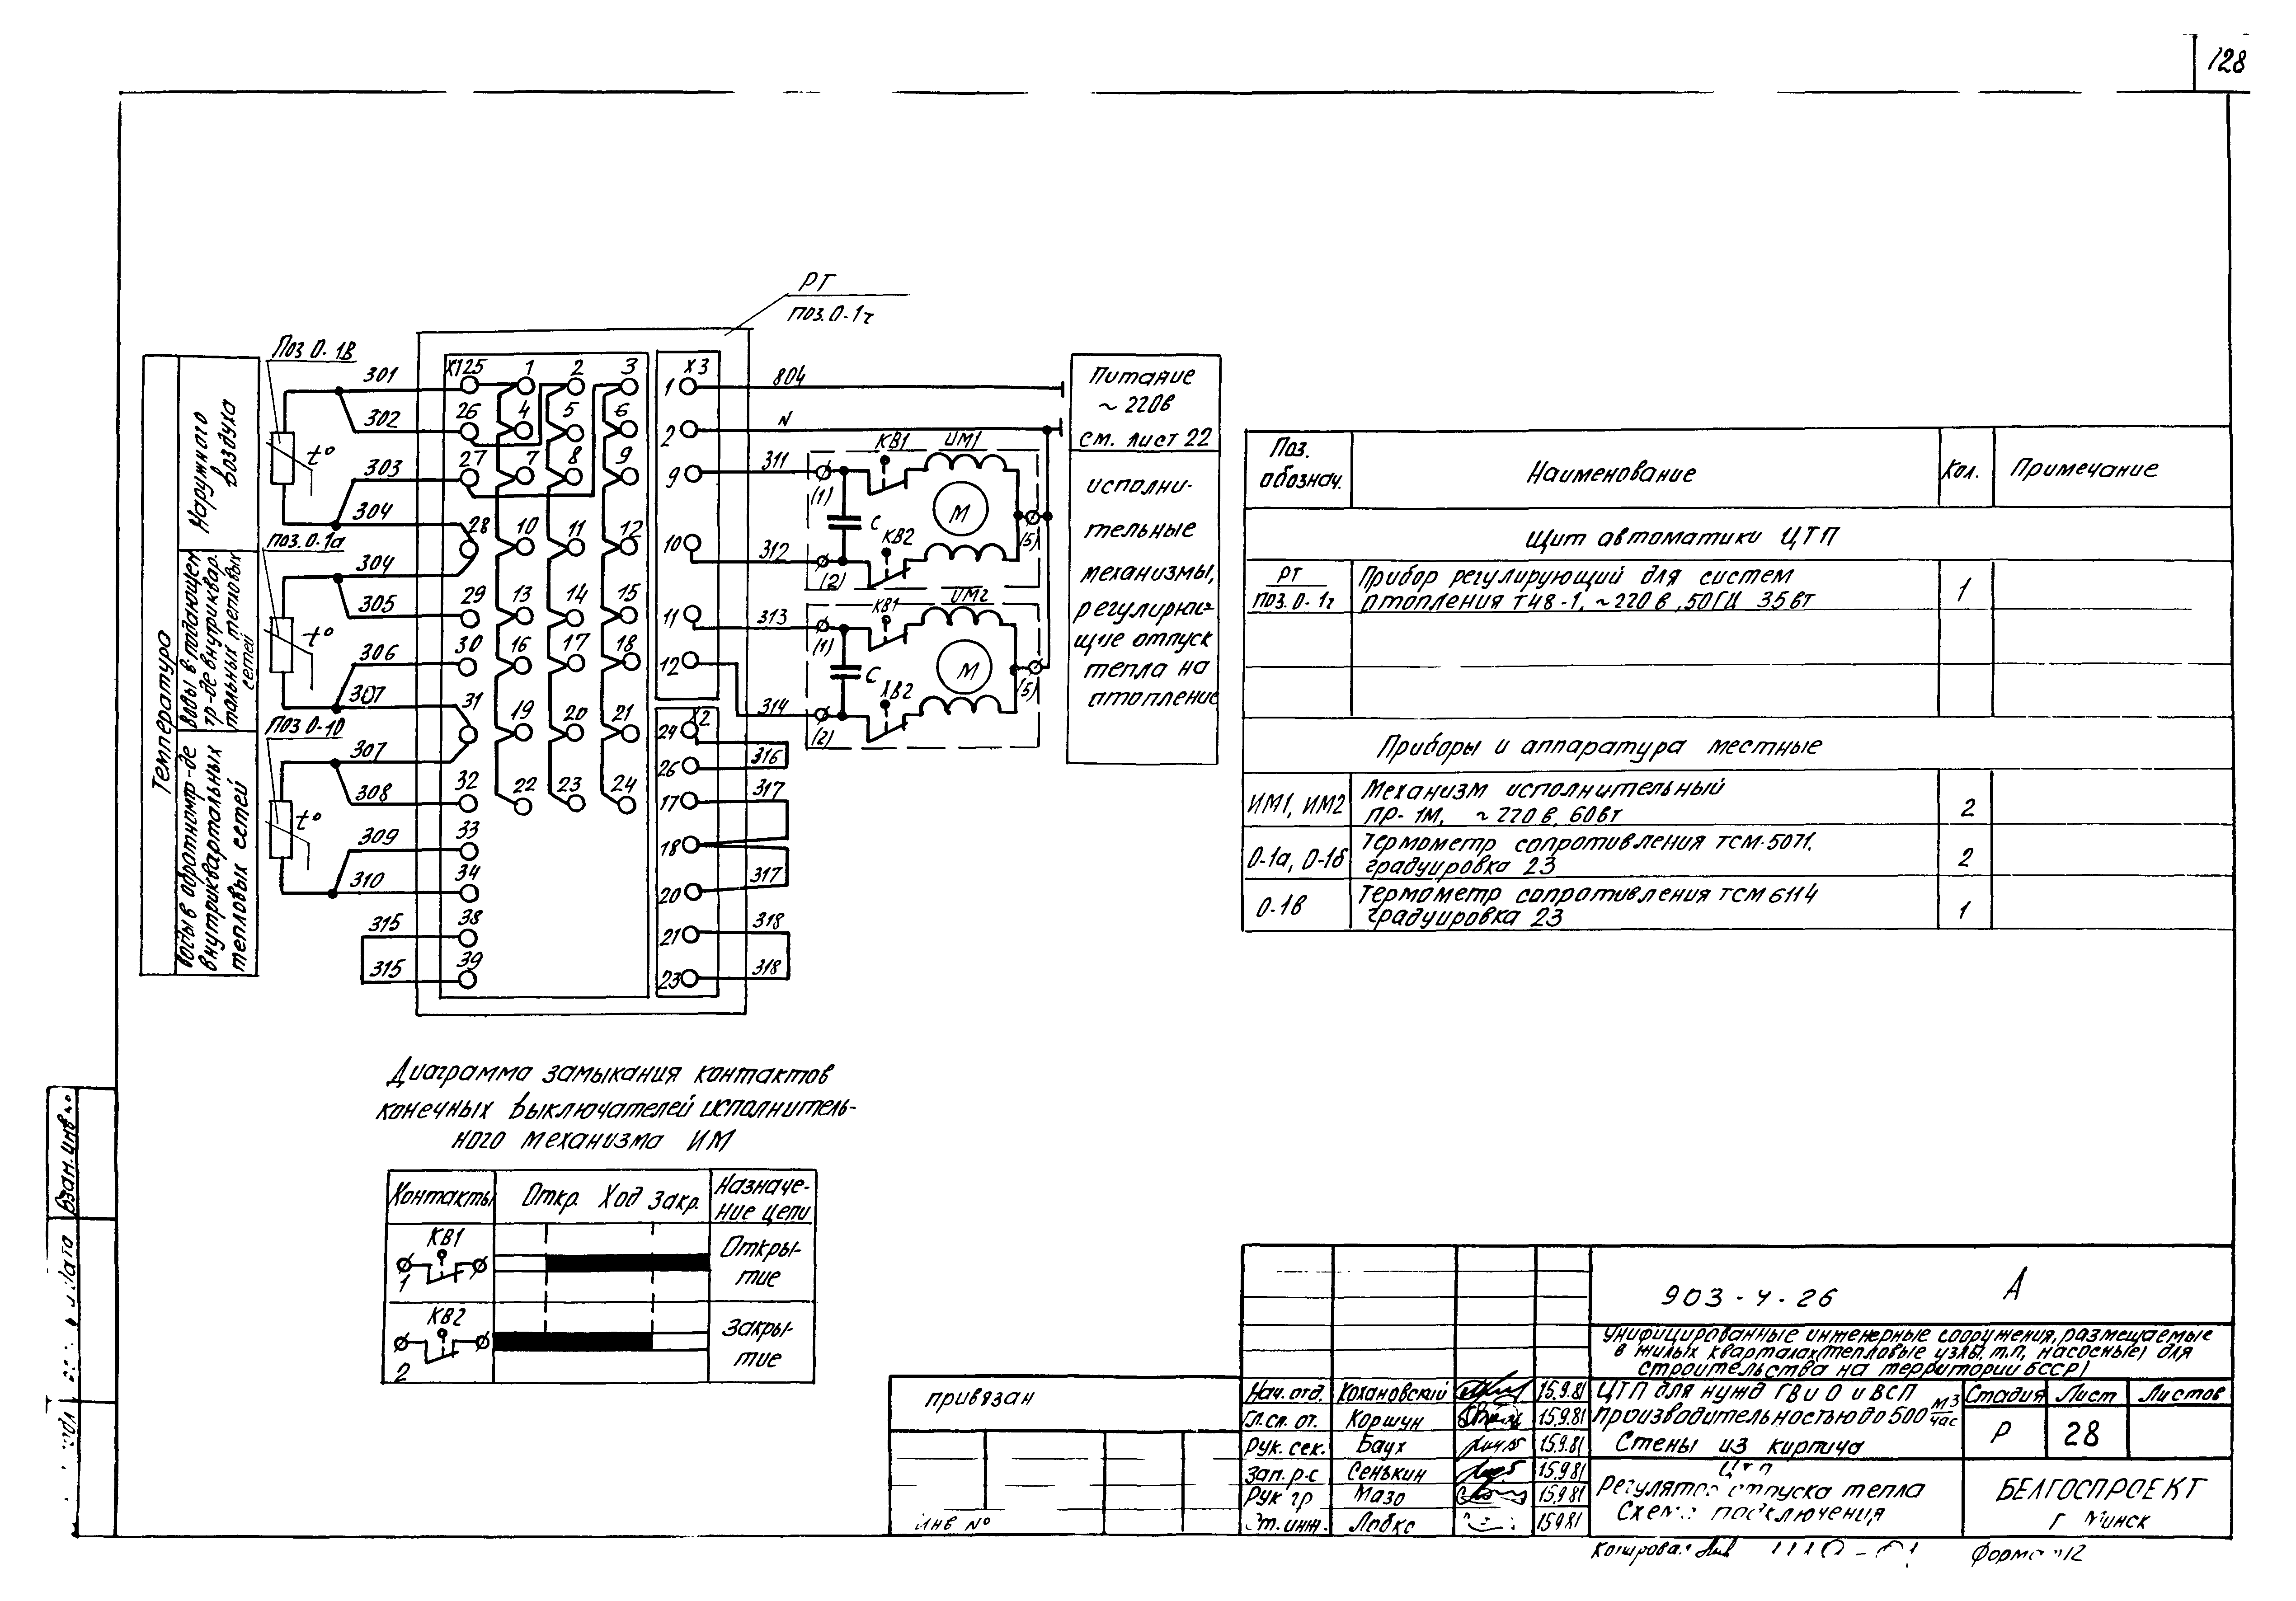 128
РТ
поз. 0-1г
Поз 0-1в
поз. 0-1а
Поз 0-1б
Температура
Наружного
воздуха
воды в подающем
тр-де внутриквар-
тальных тепловых
сетей
воды в обратном тр-де
внутриквартальных
тепловых сетей
t°
t°
t°
301
302
303
304
304
305
306
307
307
308
309
310
315
315
X1 25 1 2 3
26 4 5 6
27 7 8 9
28 10 11 12
29 13 14 15
30 16 17 18
31 19 20 21
32 22 23 24
33
34
38
39
X3
1
2
9
10
11
12
X2
24
26
17
18
20
21
23
804
N
311
312
313
314
316
317
317
318
318
КВ1 ИМ1
(1)
C
М
КВ2
(2)
(5)
КВ1 ИМ2
(1)
C
М
КВ2
(2)
(5)
Питание
~ 220в
см. лист 22
исполни-
тельные
механизмы,
регулирую-
щие отпуск
тепла на
отопление
Поз. обознач. Наименование Кол. Примечание
Щит автоматики ЦТП
РТ
поз. 0-1г
Прибор регулирующий для систем
отопления Т48-1, ~220 в, 50Гц 35вт
1
Приборы и аппаратура местные
ИМ1, ИМ2
Механизм исполнительный
ПР-1М, ~220 в, 60вт
2
0-1а, 0-1б
Термометр сопротивления ТСМ-5071.
градуировка 23
2
0-1в
Термометр сопротивления ТСМ 6114
градуировка 23
1
Диаграмма замыкания контактов
конечных выключателей исполнитель-
ного механизма ИМ
Контакты Откр. Ход Закр. Назначе-
ние цепи
КВ1
1
Откры-
тие
КВ2
2
Закры-
тие
Взам. инв №
дата
привязан
инв №
903-4-26 А
Унифицированные инженерные сооружения, размещаемые
в жилых кварталах (тепловые узлы, т.п, насосные) для
строительства на территории БССР)
Нач. отд. Кохановский 15.9.81
Гл. сп. от. Коршун 15.9.81
Рук. сек. Баух 15.9.81
Зап. р.с Сенькин 15.9.81
Рук гр Мазо 15.9.81
Ст. инж. Лобко 15.9.81
ЦТП для нужд ГВ и О и ВСП
производительностью до 500 м3/час
Стены из кирпича
Стадия Лист Листов
Р 28
ЦТП
Регулятор отпуска тепла
Схема подключения
БЕЛГОСПРОЕКТ
г Минск
Копировал
Формат 12